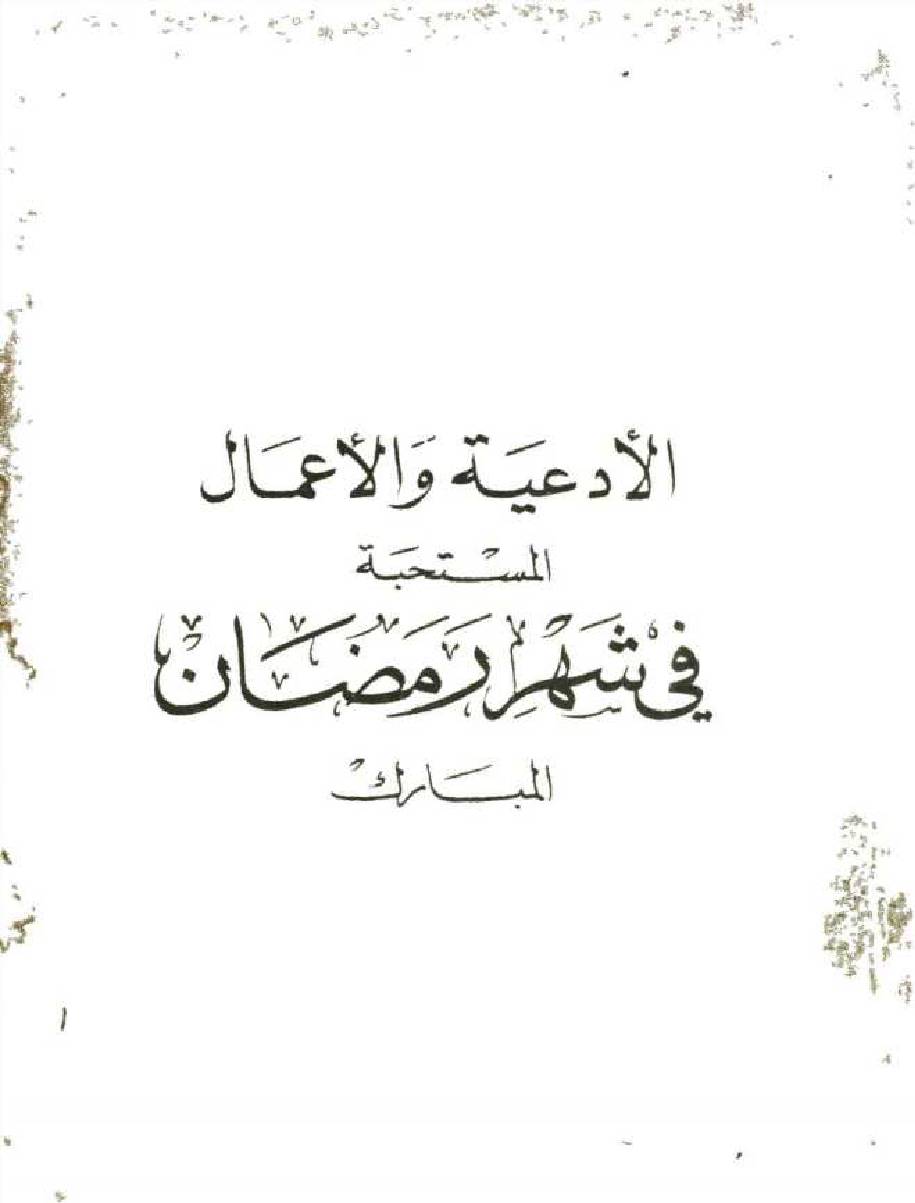 الأدعية وَالأعمَال
المستحبة
في شَهْرِ رَمَضَان
المبارك